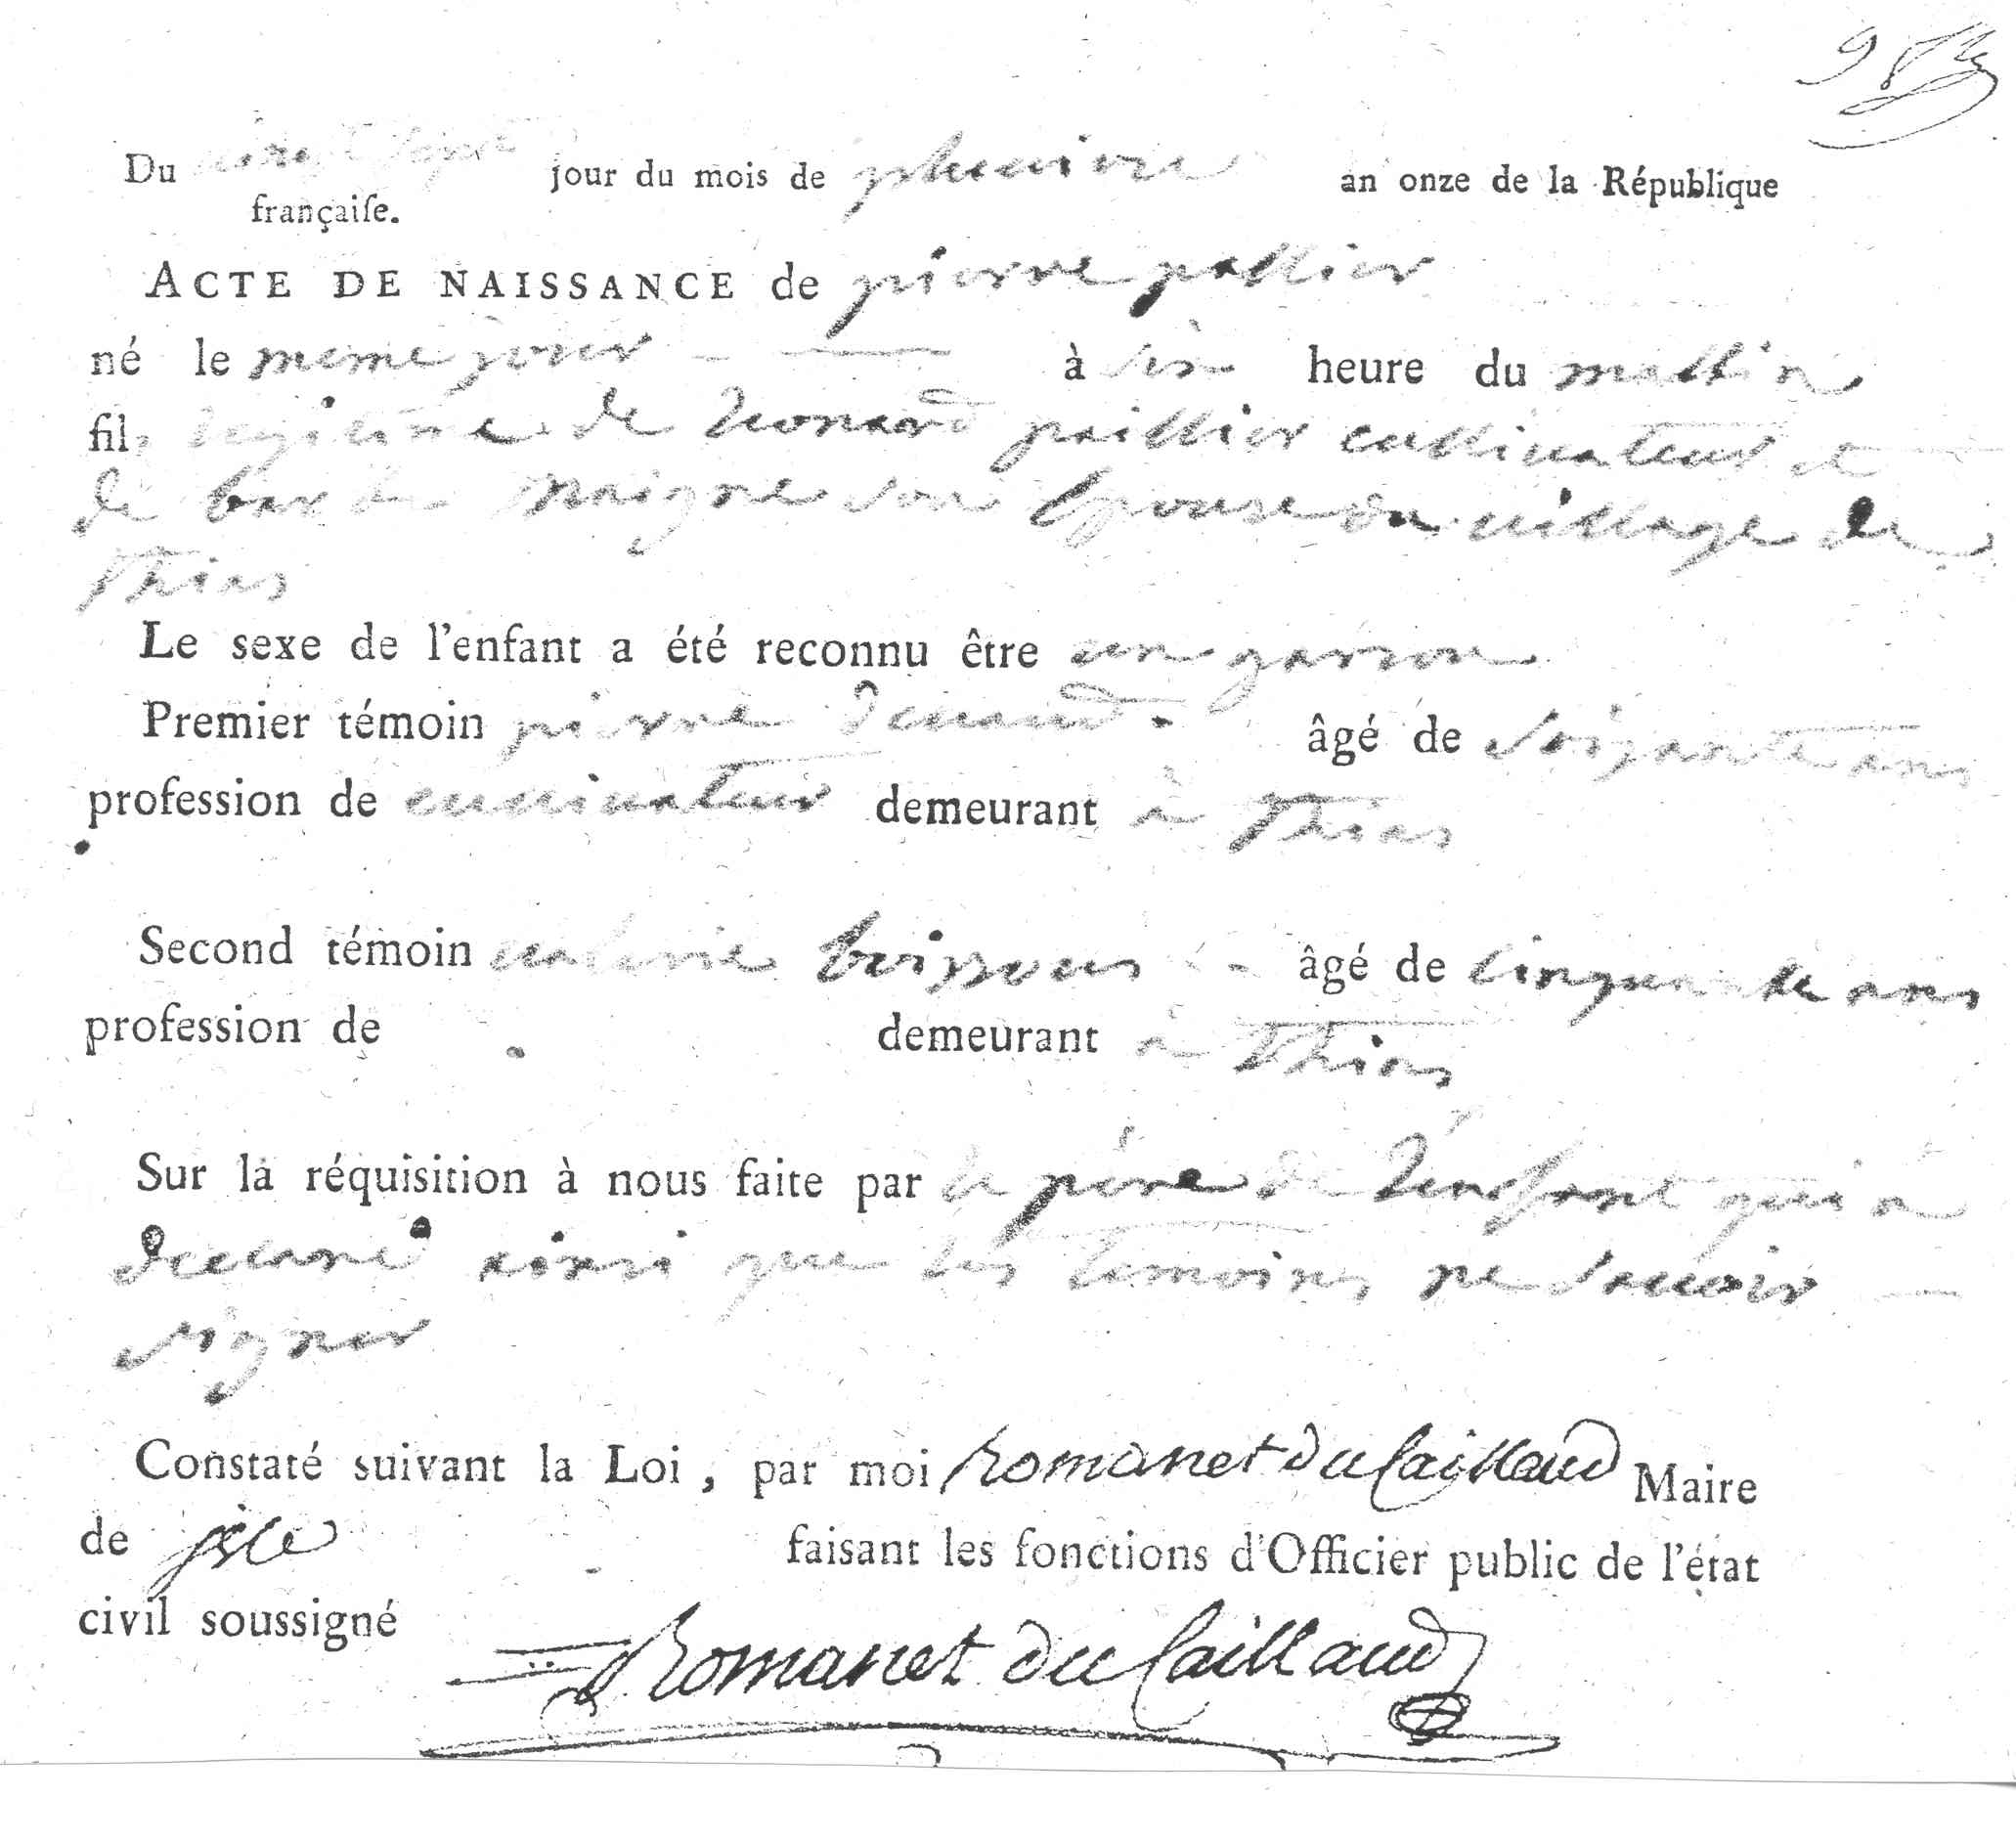 Du vingt sept jour du mois de pluviose an onze de la République
françaiſe.
ACTE DE NAISSANCE de pierre pallier
né le meme jour à six heure du mattin
fils legitime de Leonard paillier cultivateur et
de   son Epouse du village de
Thias
Le sexe de l'enfant a été reconnu être un garson
Premier témoin pierre   âgé de soixante ans
profession de cultivateur demeurant à Thias
Second témoin   boissous âgé de cinquante ans
profession de demeurant à Thias
Sur la réquisition à nous faite par le père de l'enfant qui a
declaré ainsi que les temoins ne savoir
signer
Constaté suivant la Loi, par moi Romanet du Caillaud Maire
de isle faisant les fonctions d'Officier public de l'état
civil soussigné
Romanet du Caillaud